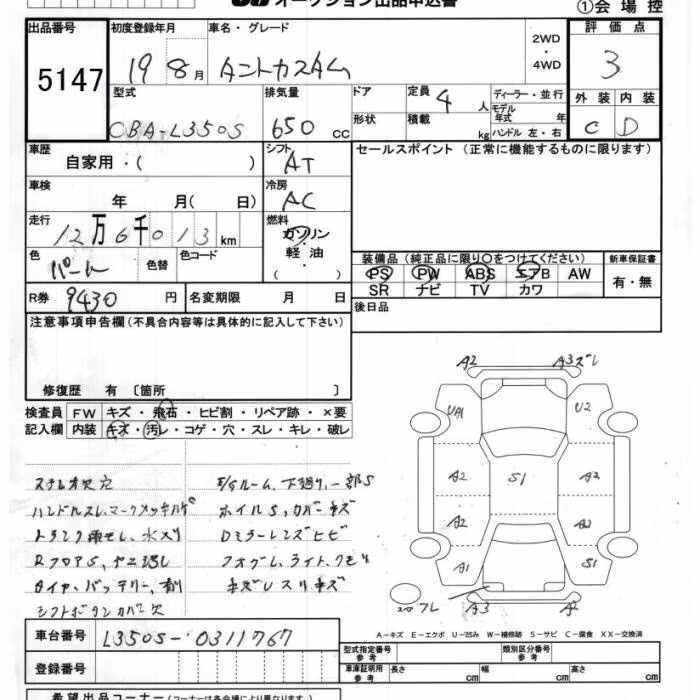 オークション出品申込書
①会場控
出品番号
5147
初度登録年月
19 8月
車名・グレード
タントカスタム
2WD
・
4WD
評価点
3
型式
CBA-L350S
排気量
650 cc
ドア
形状
定員 4 人
積載 kg
ディーラー・並行
モデル
年式 年
ハンドル 左・右
外装 内装
C D
車歴
自家用:( )
シフト
AT
セールスポイント (正常に機能するものに限ります)
車検
年 月( 日)
冷房
AC
走行
12万6千013km
燃料
ガソリン
・
軽油
( )
色
パール
色替
色コード
装備品 (純正品に限り○をつけてください)
新車保証書
PS PW ABS エアB AW
SR ナビ TV カワ
有・無
R券 9430 円
名変期限 月 日
後日品
注意事項申告欄 (不具合内容等は具体的に記入して下さい)
修復歴 有 〔箇所 〕
検査員
記入欄
FW キズ・飛石・ヒビ割・リペア跡・×要
内装 キズ・汚レ・コゲ・穴・スレ・キレ・破レ
ステレオ欠穴
ハンドルスレ、マークメッキハゲ
RフロアS、ヤニ汚し
タイヤ、バッテリー、有り
シフトボタンカバー欠
E/Gルーム、下廻り、一部S
ホイルS、カバーキズ
DミラーレンズヒビB
A2 A3ズレ
UA1 U2
A2 S1 A2
A2 A2
A1 C1
スペアフレ A3 A2
A-キズ E-エクボ U-凹み W-補修跡 S-サビ C-腐食 XX-交換済
車台番号
L350S-0311767
登録番号
型式指定番号
参考
類別区分番号
参考
車庫証明用
参考
長さ cm 幅 cm 高さ cm
希望出品コーナー (コーナーは各会場により異なります)